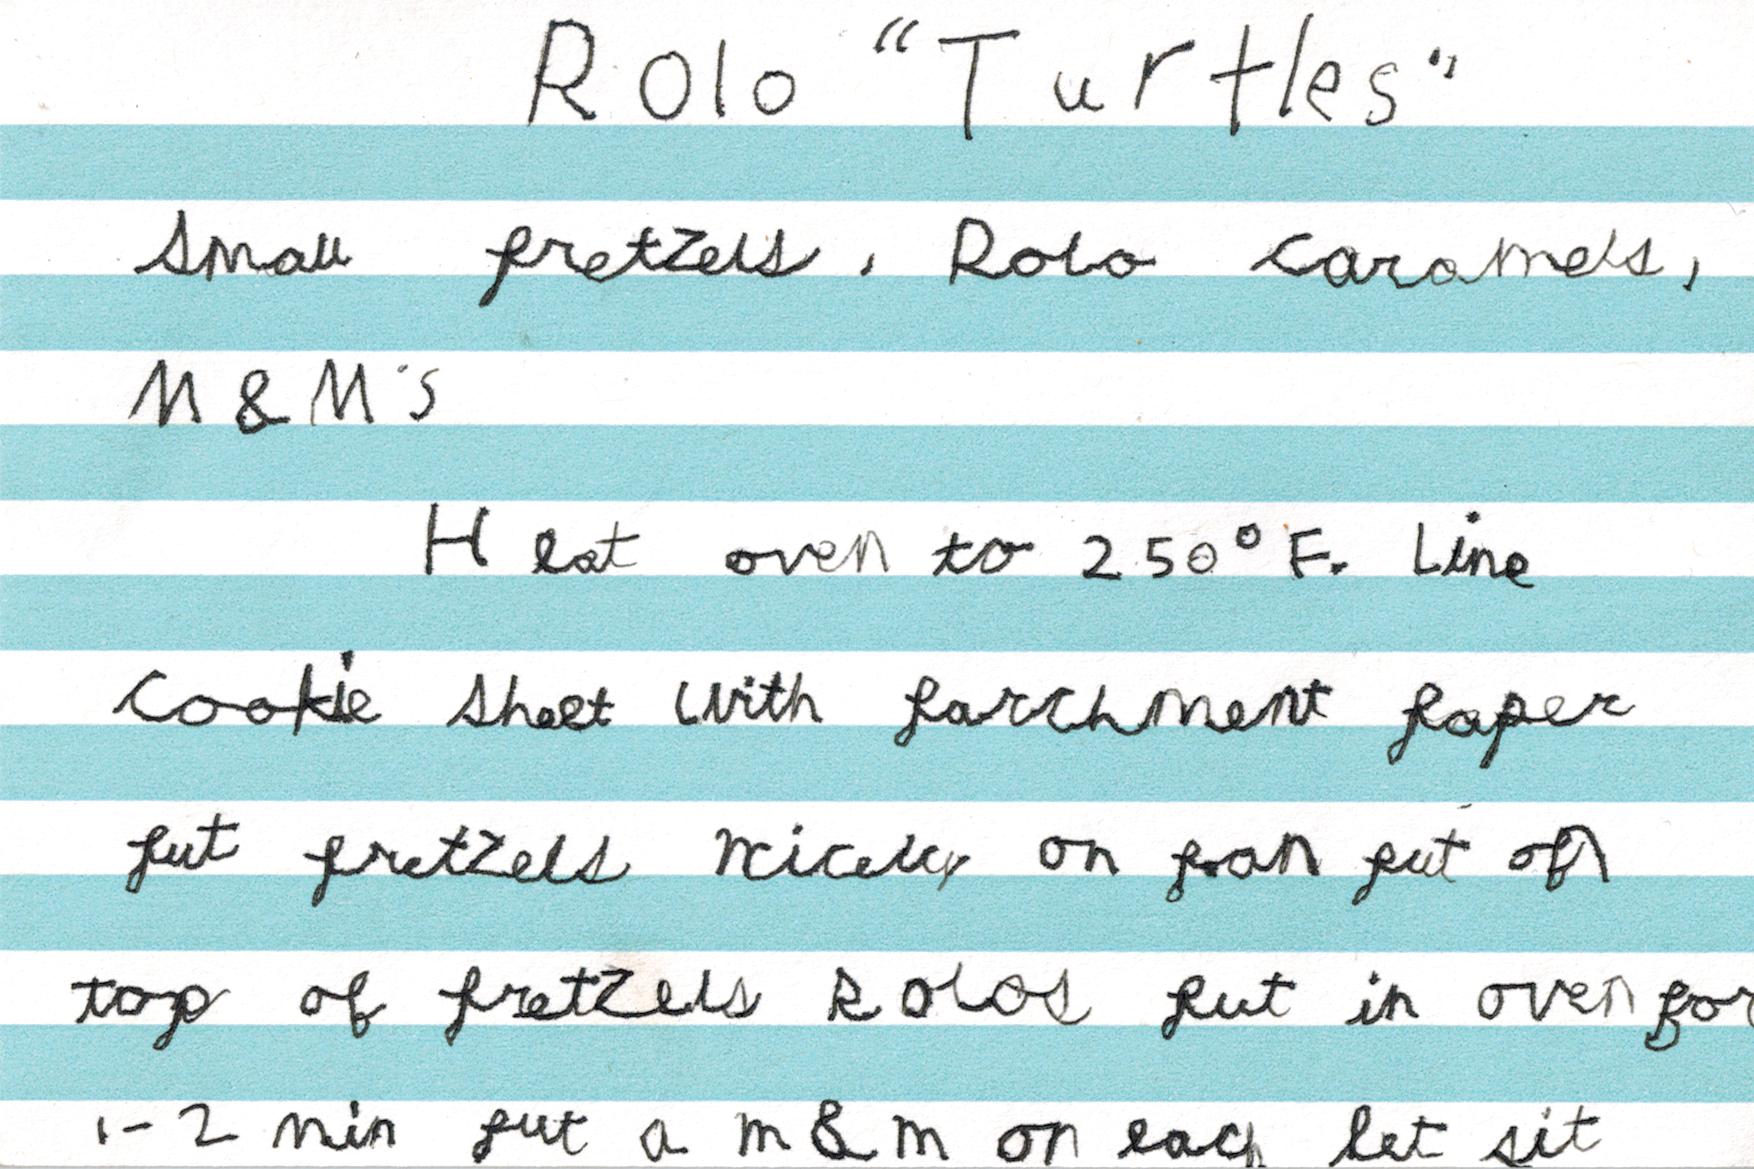 Rolo "Turtles"
Small pretzels, Rolo caramels,
M&M's
Heat oven to 250°F. Line
cookie sheet with parchment paper
put pretzels nicely on pan put on
top of pretzels Rolos put in oven for
1-2 min put a m&m on each let sit